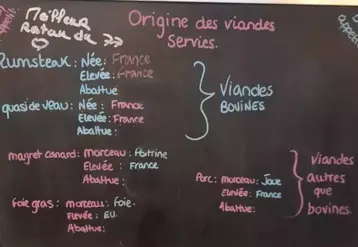 Origine des viandes
Servies.
Rumsteak : Née : France
Elevée : France
Abattue
Viandes
BOVINES
quasi de veau : Née : France
Elevée : France
Abattue :
magret canard : morceau : Poitrine
Elevée : France
Abattue :
Porc : morceau : Joue
Elevée : France
Abattue :
Viandes
autres
que
bovines.
foie gras : morceau : foie.
Elevée : EU.
Abattue :